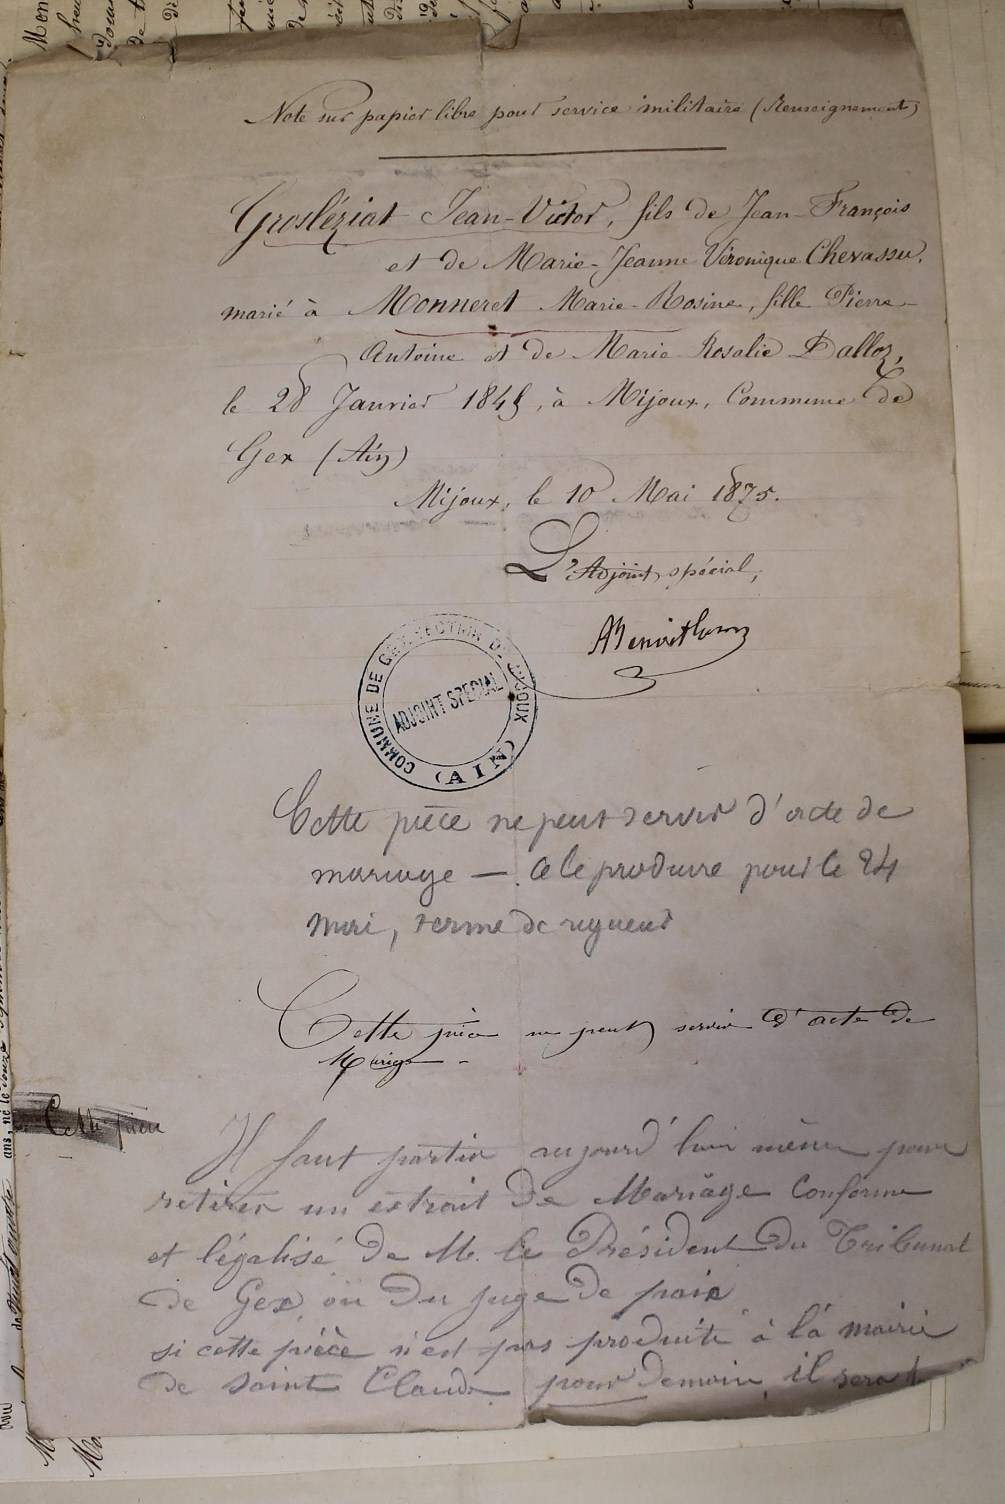 Note sur papier libre pour service militaire (Renseignement)
Grosléziat Jean-Victor, fils de Jean-François
et de Marie-Jeanne Véronique Chevassu,
marié à Monneret Marie-Rosine, fille Pierre-
Antoine et de Marie Rosalie Dalloz,
le 28 Janvier 1845, à Mijoux, Commune de
Gex (Ain)
Mijoux, le 10 Mai 1875.
L'Adjoint spécial,
COMMUNE DE GEX SECTION DE MIJOUX
ADJOINT SPECIAL
(AIN)
Cette pièce ne peut servir d'acte de
mariage — le produire pour le 24
mai, terme de rigueur
Cette pièce ne peut servir d'acte de
Mariage -
Cette pièce
Il faut partir aujourd'hui même pour
retirer un extrait de Mariage Conforme
et légalisé de M. le Président du Tribunal
de Gex ou du juge de paix
si cette pièce n'est pas produite à la mairie
de Saint Claude pour demain, il sera